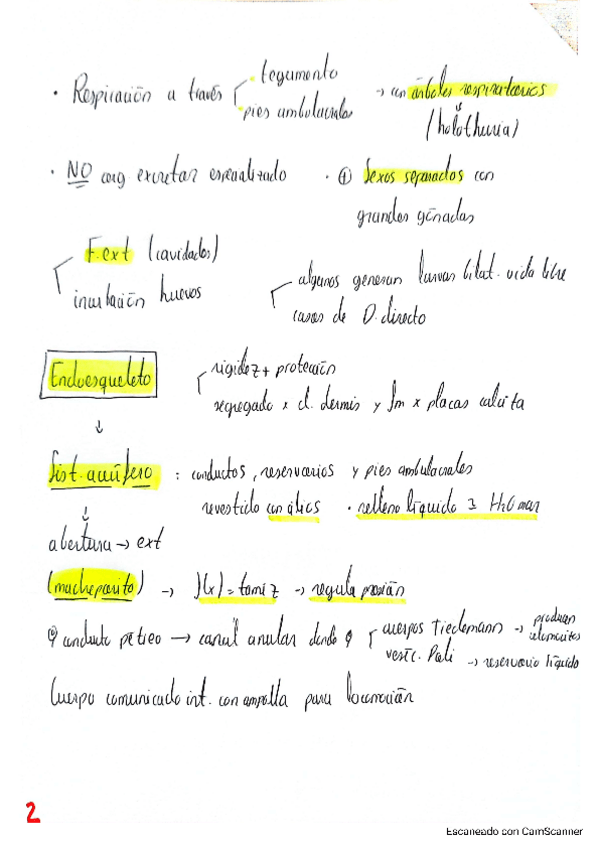 · Respiración a través tegumento
pies ambulacrales → con árboles respiratorios
(holothuria)
· NO excretar especializado · ① Sexos separados con
grandes gónadas
F. ext (cavidades)
incubación huevos
algunos generan larvas bilat. vida libre
casos de D. directo
Endoesqueleto
rigidez + protección
segregado x cl. dermis y fm x placas calcita
↓
Sist. acuífero : conductos, reservorios y pies ambulacrales
revestido con cilios · relleno líquido H₂O mar
abertura → ext
(madreporito) → f(x) = tamiz → regula presión
conducto pétreo → canal anular donde cuerpos Tiedemann → producen celomocitos
vesíc. Poli → reservorio líquido
Cuerpo comunicado int. con ampolla para locomoción
2
Escaneado con CamScanner